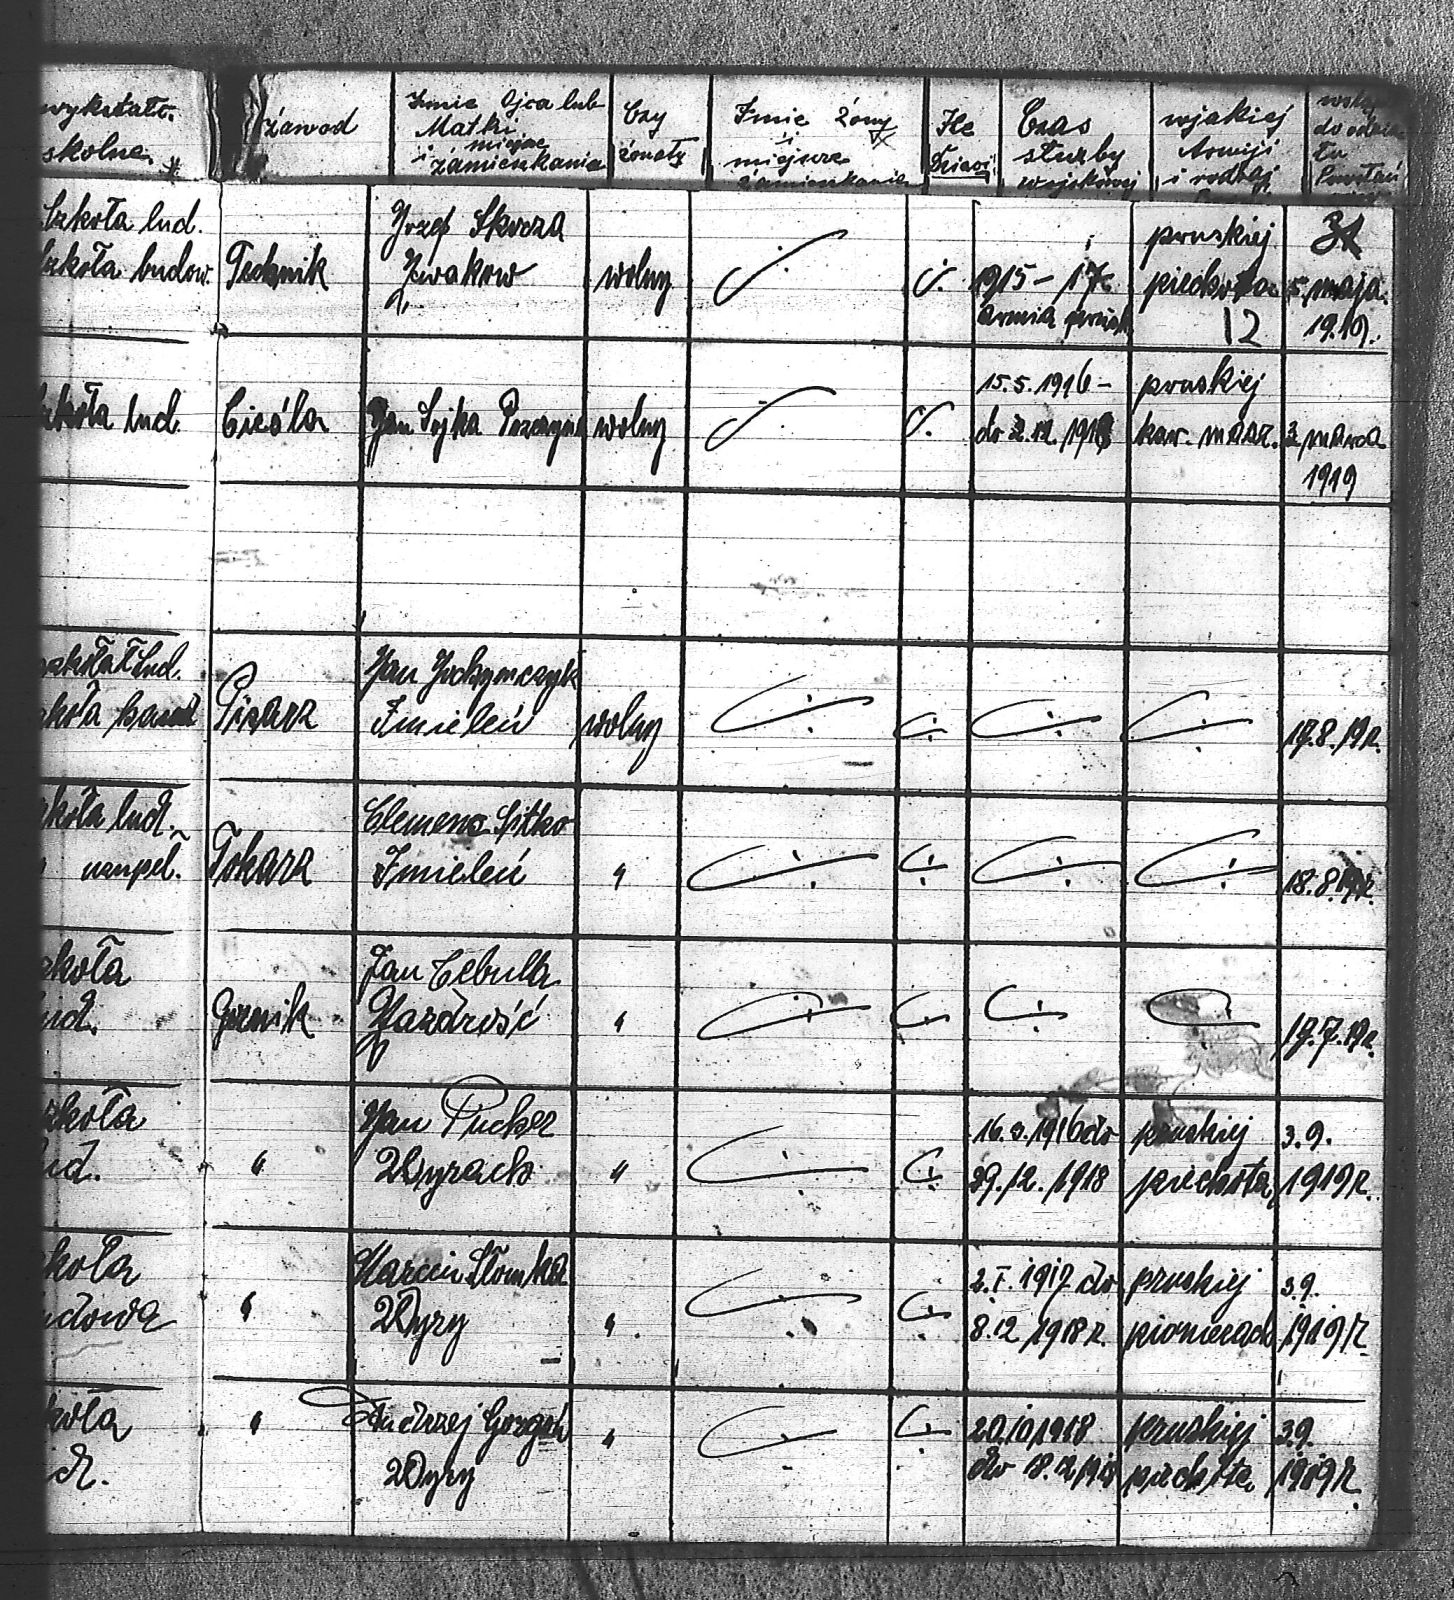 wykształc.
skolne.
zawod
Imie Ojca lub
Matki
i miejsce
zamieszkania
Czy
żonaty
Imie żony
i
miejsce
zamieszkania
Ile
Dzieci
Czas
służby
wojskowej
wjakiej
Armji
i rodzaj
do oddzia
łu
Powstań
Szkoła lud.
Szkoła budow.
Technik
Jozef Skorza
wolny
1915 – 17
armia prusk
pruskiej
piechota
12
31
5. maja
1919.
szkoła lud.
Cieśla
Jan Sojka
wolny
15.5.1916 –
do 2.12.1918
pruskiej
kar. masz.
3 marca
1919
szkoła lud.
szkoła
Pisarz
Jan Jochymczyk
Imieleń
wolny
17.8.19r.
szkoła lud.
uzupeł.
Tokarz
Clemens Sitko
Imieleń
"
18.8.19r.
szkoła
lud.
Gornik
Jan Cebulla
Jazdrość
"
17.7.19r.
szkoła
lud.
"
Jan Pucher
Wyrach
"
16.3.1916 do
29.12.1918
pruskiej
piechota
3.9.
1919r.
szkoła
ludowa
"
Marcin Słomka
Wyry
"
2.I.1917 do
8.12.1918r.
pruskiej
3.9.
1919r.
szkoła
"
Andrzej Gorgoń
Wyry
"
20.10.1918
do 18.12.1918
pruskiej
piechota
3.9.
1919r.